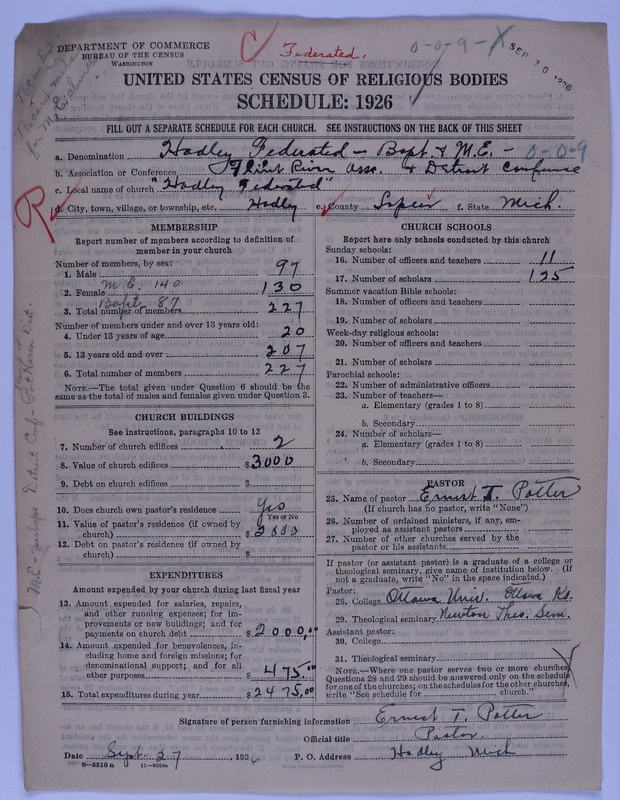 DEPARTMENT OF COMMERCE
BUREAU OF THE CENSUS
WASHINGTON
Federated.
0-0-9-X
SEP 30 1926
UNITED STATES CENSUS OF RELIGIOUS BODIES
SCHEDULE: 1926
FILL OUT A SEPARATE SCHEDULE FOR EACH CHURCH. SEE INSTRUCTIONS ON THE BACK OF THIS SHEET
a. Denomination Hadley Federated - Bapt. & M.E. - 0-0-9
b. Association or Conference Flint River Asso. & Detroit Conference
c. Local name of church "Hadley Federated"
R
d. City, town, village, or township, etc. Hadley e. County Lapeer f. State Mich.
MEMBERSHIP
Report number of members according to definition of
member in your church
Number of members, by sex:
1. Male 97
M.E. 140
2. Female 130
Bapt. 87
3. Total number of members 227
Number of members under and over 13 years old:
4. Under 13 years of age 20
5. 13 years old and over 207
6. Total number of members 227
NOTE.—The total given under Question 6 should be the
same as the total of males and females given under Question 3.
CHURCH BUILDINGS
See instructions, paragraphs 10 to 12
7. Number of church edifices 2
8. Value of church edifices $3000
9. Debt on church edifices $
10. Does church own pastor's residence Yes
Yes or No
11. Value of pastor's residence (if owned by
church) $2000
12. Debt on pastor's residence (if owned by
church) $
EXPENDITURES
Amount expended by your church during last fiscal year
13. Amount expended for salaries, repairs,
and other running expenses; for im-
provements or new buildings; and for
payments on church debt $2000.00
14. Amount expended for benevolences, in-
cluding home and foreign missions; for
denominational support; and for all
other purposes $475.00
15. Total expenditures during year $2475.00
CHURCH SCHOOLS
Report here only schools conducted by this church
Sunday schools:
16. Number of officers and teachers 11
17. Number of scholars 125
Summer vacation Bible schools:
18. Number of officers and teachers
19. Number of scholars
Week-day religious schools:
20. Number of officers and teachers
21. Number of scholars
Parochial schools:
22. Number of administrative officers
23. Number of teachers—
a. Elementary (grades 1 to 8)
b. Secondary
24. Number of scholars—
a. Elementary (grades 1 to 8)
b. Secondary
PASTOR
25. Name of pastor Ernest T. Potter
(If church has no pastor, write "None")
26. Number of ordained ministers, if any, em-
ployed as assistant pastors
27. Number of other churches served by the
pastor or his assistants
If pastor (or assistant pastor) is a graduate of a college or
theological seminary, give name of institution below. (If
not a graduate, write "No" in the space indicated.)
Pastor:
28. College Ottawa Univ. Ottawa Ks.
29. Theological seminary Newton Theo. Sem.
Assistant pastor:
30. College
31. Theological seminary
NOTE.—Where one pastor serves two or more churches,
Questions 28 and 29 should be answered only on the schedule
for one of the churches; on the schedules for the other churches,
write "See schedule for church."
Signature of person furnishing information Ernest T. Potter
Official title Pastor
Date Sept. 27, 1926 P. O. Address Hadley Mich
8-5518a 11-9054a